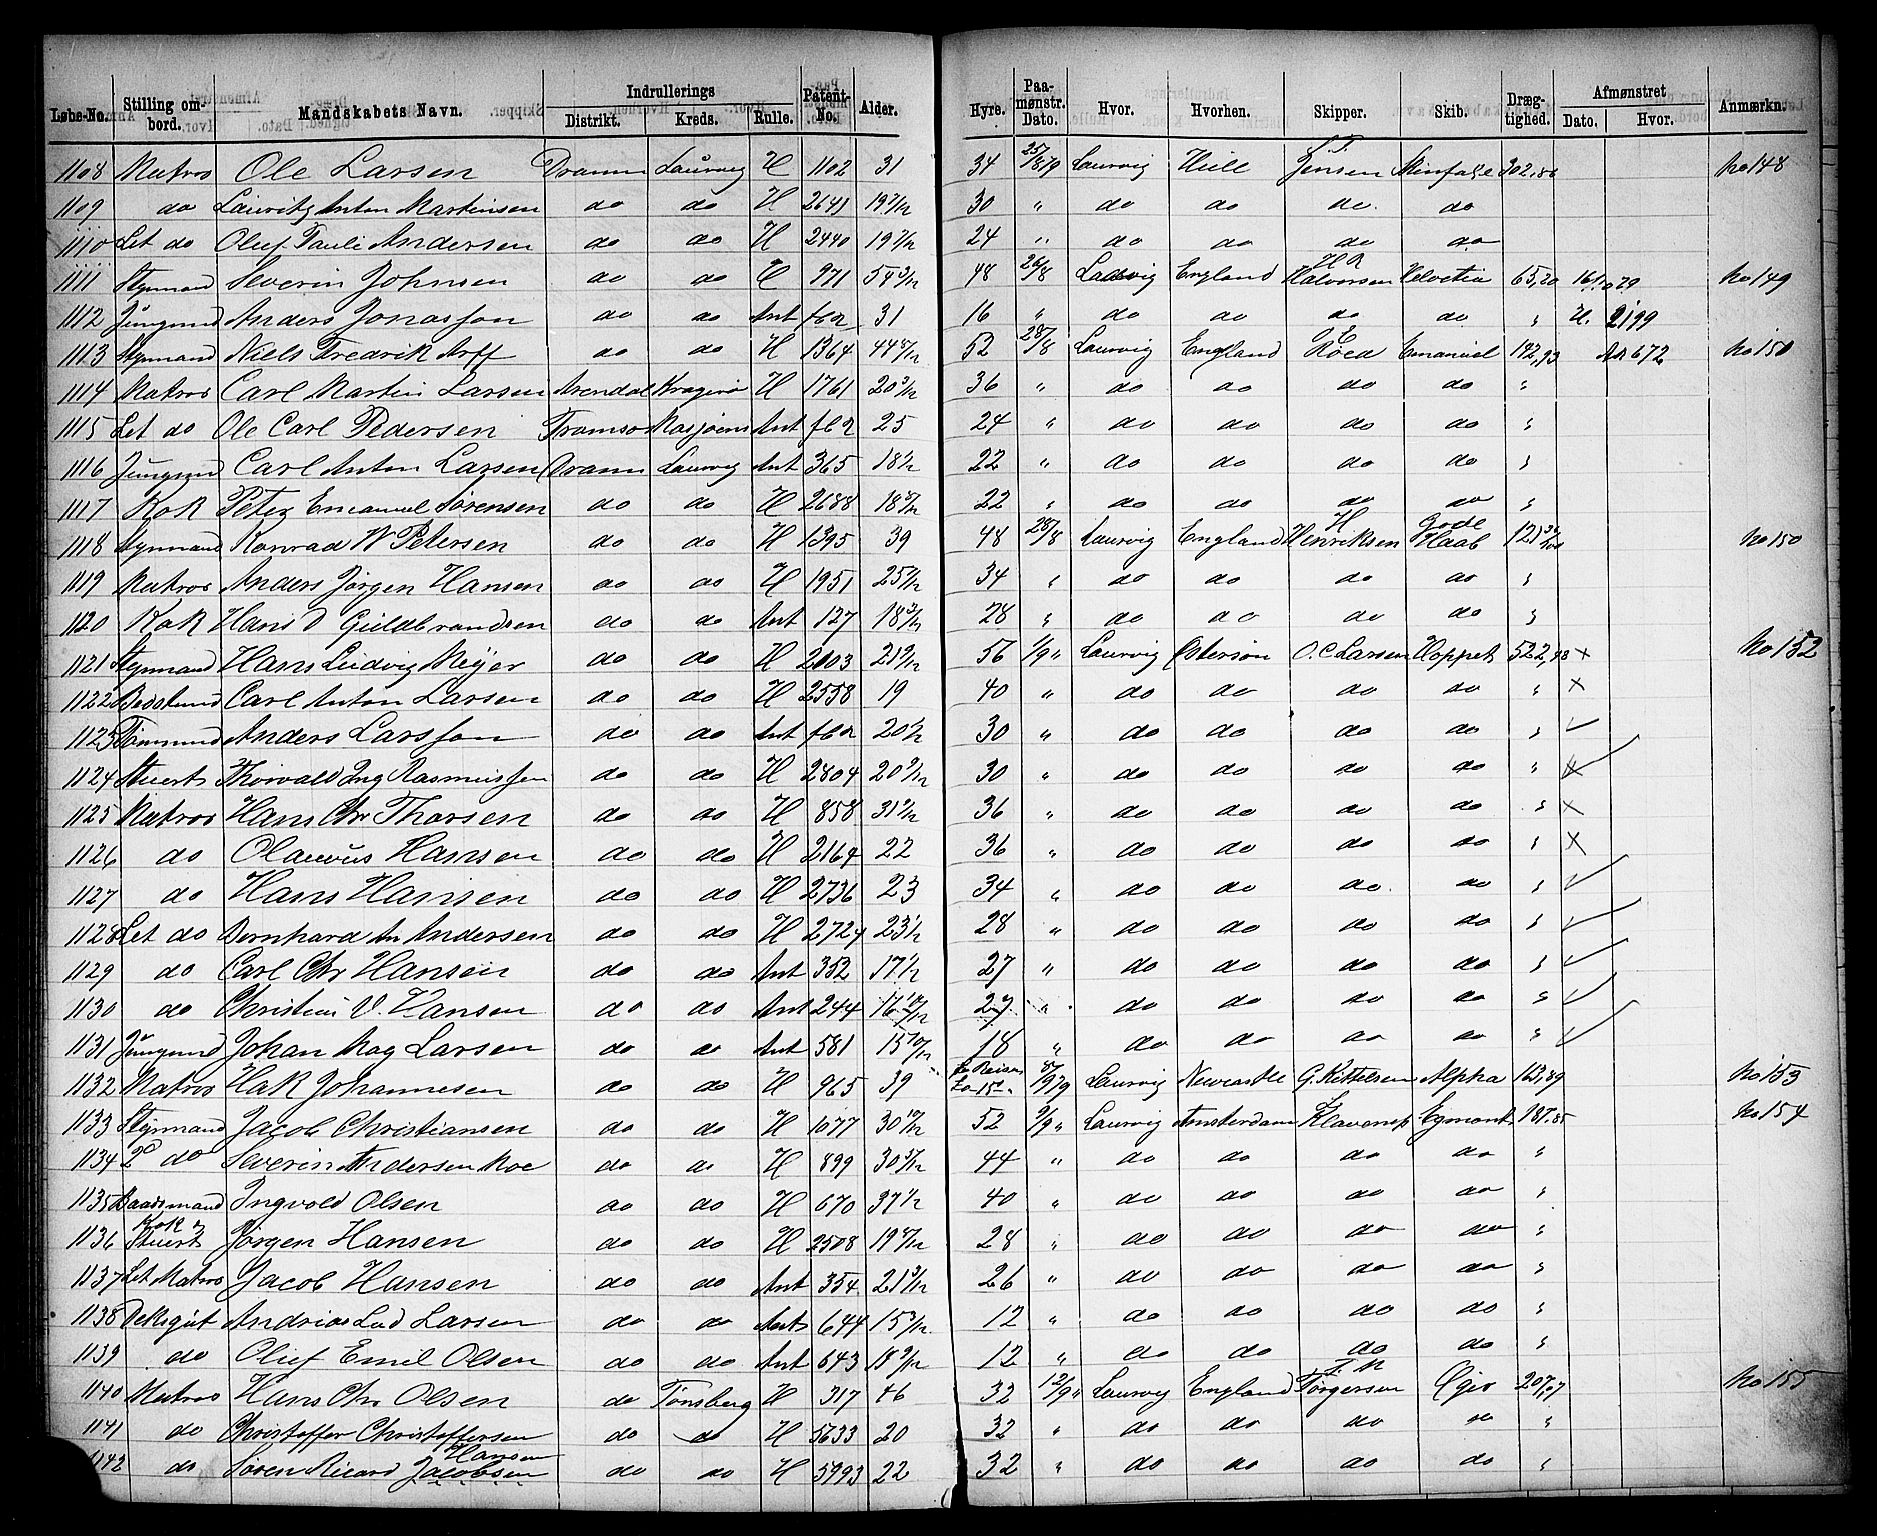 Løbe-No. Stilling ombord. Mandskabets Navn. Indrullerings Distrikt. Kreds. Rulle. Patent-No. Alder. Hyre. Paamønstr. Dato. Hvor. Hvorhen. Skipper. Skib. Drægtighed. Afmønstret Dato. Hvor. Anmærkn.
1108 Matros Ole Larsen Dramm Laurvig H 1102 31 34 25/8 79 Laurvig Hull Jensen 302,86 No 148
1109 do Lauritz Anton Martinsen do do H 2641 30 " do do do do
1110 Let do Oluf Pauli Andersen do do H 2440 19 7/12 24 " do do do do
1111 Styrmand Severin Johnsen do do C 971 54 3/12 48 26/8 Laurvig England H R Halvorsen Helvetia 65,20 No 149
1112 Jungmd Anders Jonasson do do Ant 31 16 " do do do do " 2199
1113 Styrmand Niels Fredrik Arff do do H 1364 52 28/8 Laurvig England E Roed Emanuel 142,93 672 No 150
1114 Matros Carl Martin Larsen Arendal Kragerø H 1761 20 3/12 36 " do do do do "
1115 Let do Ole Carl Pedersen Tromsø Ant 25 24 " do do do do "
1116 Jungmd Carl Anton Larsen Dramm Laurvig Ant 365 18 1/2 22 " do do do do "
1117 Kok Peter Emanuel Sørensen do do H 2688 22 " do do do do "
1118 Styrmand Konrad W Petersen do do H 1395 39 48 28/8 Laurvig England H Henriksen Gode Haab 121 No 150
1119 Matros Anders Jørgen Hansen do do H 1951 34 " do do do do "
1120 Kok Hans O Guldbrandsen do do Ant 127 18 3/12 28 " do do do do "
1121 Styrmand Hans Ludvig Meyer do do H 2103 56 1/9 " Laurvig Østersøn O. C Larsen Hoppet 522,48 x No 152
1122 Carl Anton Larsen do do H 2558 19 40 " do do do do " x
1123 Tømmnd Anders Larsson do do Ant 20 1/2 30 " do do do do "
1124 Stuert Thorvald Ing Rasmussen do do H 2804 20 9/12 30 " do do do do " x
1125 Matros Hans Chr Thorsen do do H 858 31 1/2 36 " do do do do " x
1126 do Olauus Hansen do do H 2164 22 36 " do do do do " x
1127 do Hans Hansen do do H 2736 23 34 " do do do do "
1128 Let do Bernhard An Andersen do do H 2724 23 1/2 28 " do do do do "
1129 do Carl Chr Hansen do do Ant 352 17 1/2 27 " do do do do "
1130 do Christian V. Hansen do do Ant 244 16 10/12 27 " do do do do "
1131 Jungmd Johan Mag Larsen do do Ant 581 15 10/12 18 " do do do do "
1132 Matros Hak Johannesen do do H 965 39 Laurvig Newcastle G. Kittelsen Alpha 163,89 No 153
1133 Styrmand Jacob Christiansen do do H 1077 30 10/12 52 9/9 " Laurvig Amsterdam Klavenes Egmont 187.85 No 154
1134 2 do Severin Andersen Moe do do H 899 44 " do do do do "
1135 Baadsmand Ingvold Olsen do do H 670 37 1/2 40 " do do do do "
1136 Kok o Stuert Jørgen Hansen do do H 2508 28 " do do do do "
1137 Let Matros Jacob Hansen do do Ant 354 21 3/12 26 " do do do do "
1138 Deksgut Andrias Lud Larsen do do Ant 644 12 " do do do do "
1139 do Oluf Emil Olsen do do Ant 643 12 " do do do do "
1140 Matros Hans Chr Olsen do Tønsberg H 317 46 32 12/9 " Laurvig England Torgersen 207,07 No 155
1141 do Christoffer Christoffersen do do H 5633 20 32 " do do do do "
1142 do Søren Ricard Jacobsen Hansen do do H 5993 22 32 " do do do do "